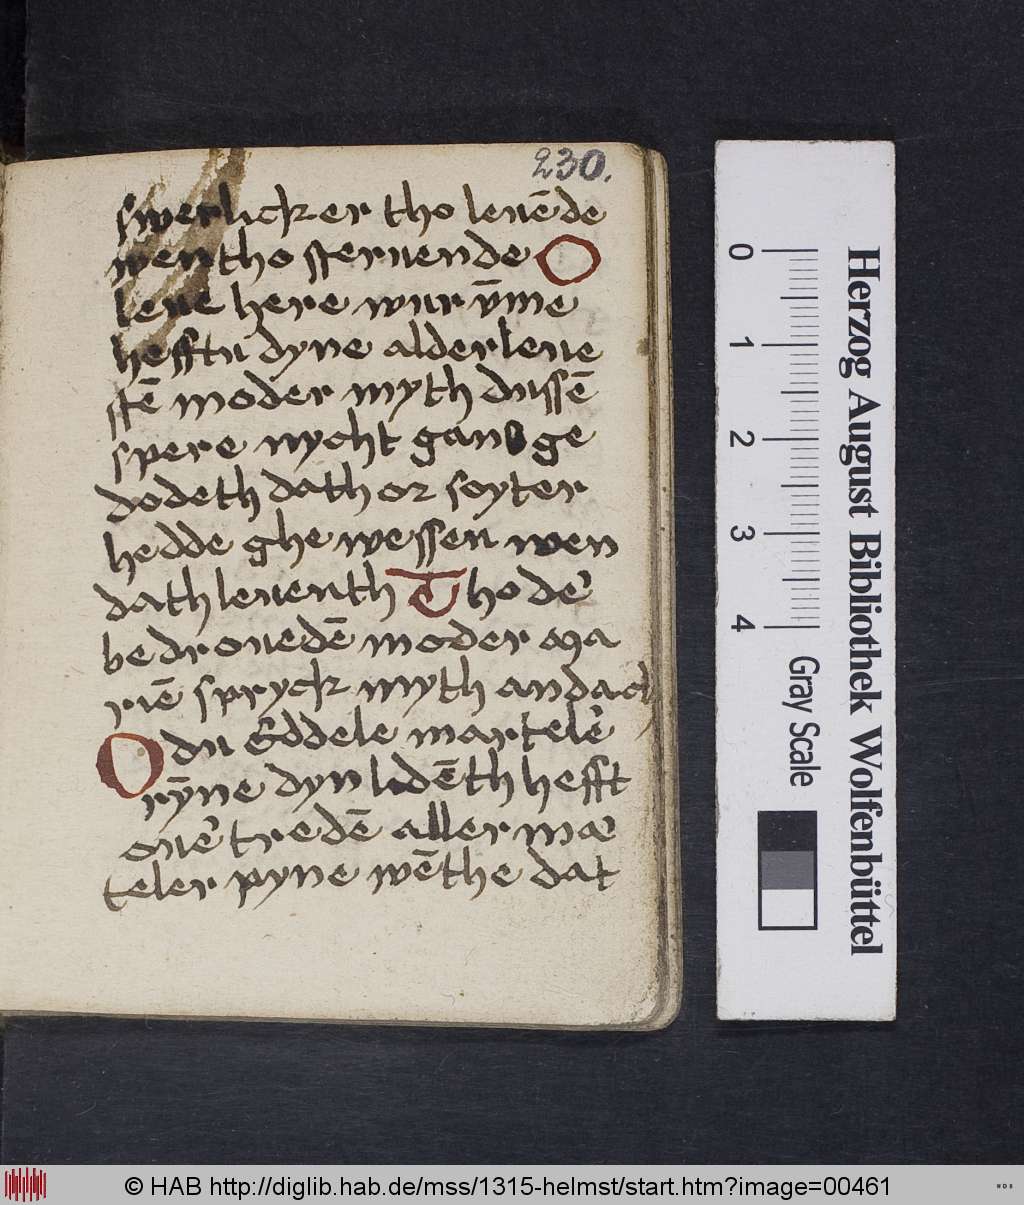 230.
swerlicker tho leuēde
wen tho steruende O
leue here wur v̄me
hefftu dyne alderleue
stē moder myth dussē
spere nycht gans ge
dodeth dath or soyter
hedde ghewessen wen
dath leuenth Tho der̄
bedrouedē moder Ma
riē spryck myth andach
O du Eddele marteler̄
rȳne dyn lidēth hefft
ouer̄ tredē aller mar
teler pyne wēthe dat
Herzog August Bibliothek Wolfenbüttel
0 1 2 3 4
Gray Scale
© HAB http://diglib.hab.de/mss/1315-helmst/start.htm?image=00461
HAB